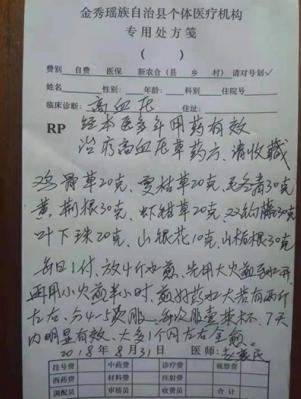 金秀瑶族自治县个体医疗机构
专用处方笺
( )
费别: 自费 医保 新农合(县 乡 村) 请对号划√
姓名: 性别: 年龄: 科别: 住院号
临床诊断: 高血压 住址:
RP 经本医多年用药有效
治疗高血压草药方,请收藏
鸡骨草20克、雷材草20克、毛冬青30克
黄荆根30克、虾钳草20克、双钩藤30克
叶下珠20克、山银花10克、山枝根30克
每日1付,放4斤水煎,先用大火煎至水开
再用小火煎半小时,煎好药水大若有两斤
左右,分4-5次服,每次服壹茶杯、7天
内明显有效、大多1个月左右全愈。
2018年8月31日 医师:
挂号费 中药费 诊疗费 观察费
西药费 材料费 注射费
调配员 审核员 收费员 合计